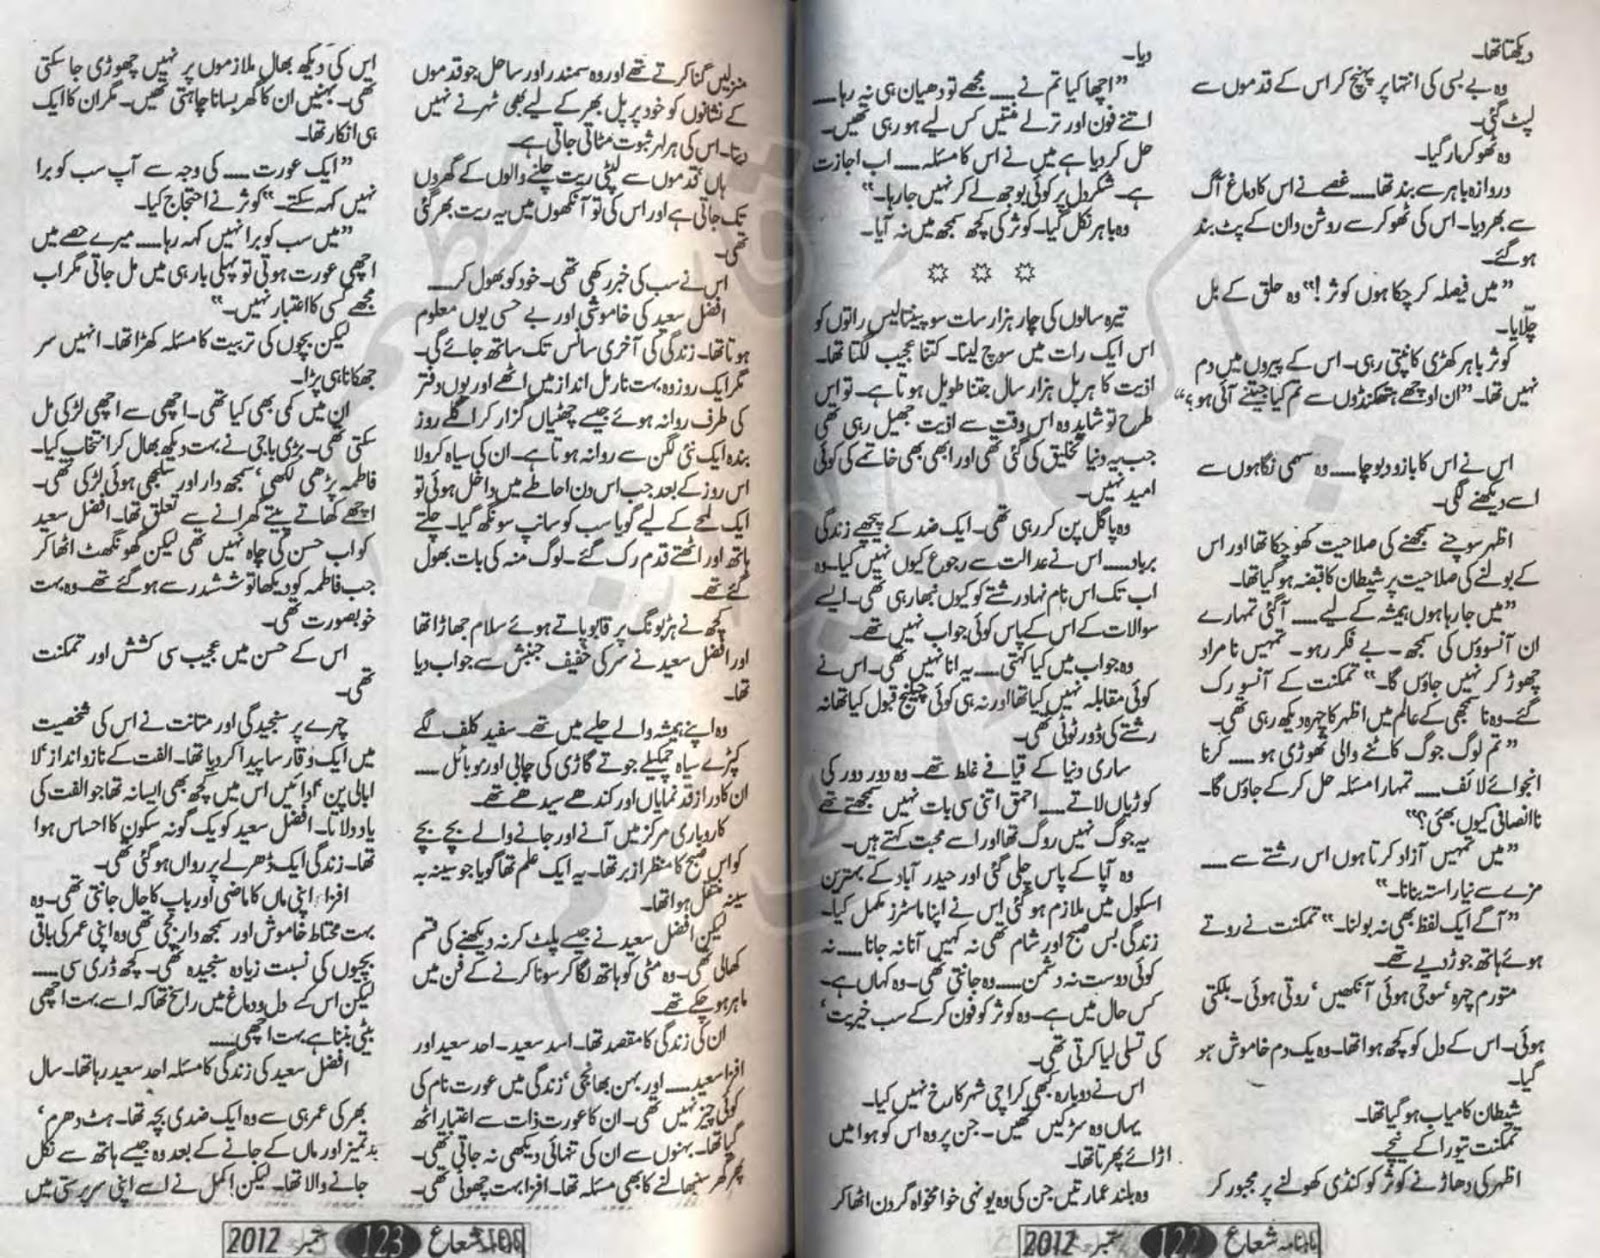 دیکھتا تھا۔
وہ بے بسی کی انتہا پر پہنچ کر اس کے قدموں سے
لپٹ گئی۔
وہ ٹھوکر مار گیا۔
دروازہ باہر سے بند تھا ۔۔۔۔ غصے نے اس کا دماغ آگ
سے بھر دیا۔ اس کی ٹھوکر سے روشن دان کے پٹ بند
ہو گئے۔
”میں فیصلہ کر چکا ہوں کوثر!“ وہ حلق کے بل
چلّایا۔
کوثر باہر کھڑی کانپتی رہی۔ اس کے پیروں میں دم
نہیں تھا۔ ”ان اوچھے ہتھکنڈوں سے تم کیا جیتنے آئی ہو؟“
اس نے اس کا بازو دبوچا ۔۔۔۔ وہ سہمی نگاہوں سے
اسے دیکھنے لگی۔
اظہر سوچنے سمجھنے کی صلاحیت کھو چکا تھا اور اس
کے بولنے کی صلاحیت پر شیطان کا قبضہ ہو گیا تھا۔
”میں جا رہا ہوں ہمیشہ کے لیے ۔۔۔۔ آ گئی تمہارے
ان آنسوؤں کی سمجھ۔ بے فکر رہو۔ تمہیں نامراد
چھوڑ کر نہیں جاؤں گا۔“ تمکنت کے آنسو رک
گئے۔ وہ نا سمجھی کے عالم میں اظہر کا چہرہ دیکھ رہی تھی۔
”تم لوگ جوگ کاٹنے والی تھوڑی ہو ۔۔۔۔ کرنا
انجوائے لائف ۔۔۔۔ تمہارا مسئلہ حل کر کے جاؤں گا۔
ناانصافی کیوں بھئی؟“
”میں تمہیں آزاد کرتا ہوں اس رشتے سے ۔۔۔۔
مزے سے نیا راستہ بنانا۔“
”آگے ایک لفظ بھی نہ بولنا۔“ تمکنت نے روتے
ہوئے ہاتھ جوڑ دیے تھے۔
متورم چہرہ‘ سوجی ہوئی آنکھیں‘ روتی ہوئی۔ بلکتی
ہوئی۔ اس کے دل کو کچھ ہوا تھا۔ وہ یک دم خاموش ہو
گیا۔
شیطان کامیاب ہو گیا تھا۔
تمکنت تیورا کے نیچے
اظہر کی دھاڑ نے کوثر کو کنڈی کھولنے پر مجبور کر
دیا۔
”اچھا کیا تم نے ۔۔۔۔ مجھے تو دھیان ہی نہ رہا ۔۔۔۔
اتنے فون اور ترلے منتیں کس لیے ہو رہی تھیں۔
حل کر دیا ہے میں نے اس کا مسئلہ ۔۔۔۔ اب اجازت
ہے۔ شکر دل پر کوئی بوجھ لے کر نہیں جا رہا۔“
وہ باہر نکل گیا۔ کوثر کی کچھ سمجھ میں نہ آیا۔
✩ ✩ ✩
تیرہ سالوں کی چار ہزار سات سو پینتالیس راتوں کو
اس ایک رات میں سوچ لینا۔ کتنا عجیب لگتا تھا۔
اذیت کا ہر پل ہزار سال جتنا طویل ہوتا ہے۔ تو اس
طرح تو شاید وہ اس وقت سے اذیت جھیل رہی تھی
جب یہ دنیا تخلیق کی گئی تھی اور ابھی بھی خاتمے کی کوئی
امید نہیں۔
وہ پاگل پن کر رہی تھی۔ ایک ضد کے پیچھے زندگی
برباد ۔۔۔۔ اس نے عدالت سے رجوع کیوں نہیں کیا۔ وہ
اب تک اس نام نہاد رشتے کو کیوں نبھا رہی تھی۔ ایسے
سوالات کے اس کے پاس کوئی جواب نہیں تھے۔
وہ جواب میں کیا کہتی ۔۔۔۔ یہ انا نہیں تھی۔ اس نے
کوئی مقابلہ نہیں کیا تھا اور نہ ہی کوئی چیلنج قبول کیا تھا نہ
رشتے کی ڈور ٹوٹی تھی۔
ساری دنیا کے قیافے غلط تھے۔ وہ دور دور کی
کوڑیاں لاتے ۔۔۔۔ احمق اتنی سی بات نہیں سمجھتے تھے
یہ جوگ نہیں روگ تھا اور اسے محبت کہتے ہیں۔
وہ آپا کے پاس چلی گئی اور حیدر آباد کے بہترین
اسکول میں ملازم ہو گئی اس نے اپنا ماسٹرز مکمل کیا۔
زندگی بس صبح اور شام تھی نہ کہیں آنا نہ جانا ۔۔۔۔ نہ
کوئی دوست نہ دشمن ۔۔۔۔ وہ جانتی تھی۔ وہ کہاں ہے۔
کس حال میں ہے۔ وہ کوثر کو فون کر کے سب خیریت‘
کی تسلی لیا کرتی تھی۔
اس نے دوبارہ کبھی کراچی شہر کا رخ نہیں کیا۔
یہاں وہ سڑکیں تھیں۔ جن پر وہ اس کو ہوا میں
اڑائے پھرتا تھا۔
وہ بلند عمارتیں جن کی وہ یونہی خوامخواہ گردن اٹھا کر
ماہنامہ شعاع 122 ستمبر 2012
منزلیں گنا کرتے تھے اور وہ سمندر اور ساحل جو قدموں
کے نشانوں کو خود پر پل بھر کے لیے بھی ٹھہرنے نہیں
دیتا۔ اس کی ہر لہر ثبوت مٹاتی جاتی ہے۔
ہاں‘ قدموں سے لپٹی ریت چلنے والوں کے گھروں
تک جاتی ہے اور اس کی تو آنکھوں میں یہ ریت بھر گئی
تھی۔
اس نے سب کی خبر رکھی تھی۔ خود کو بھول کر ۔۔۔۔
افضل سعید کی خاموشی اور بے حسی یوں معلوم
ہوتا تھا۔ زندگی کی آخری سانس تک ساتھ جائے گی۔
مگر ایک روز وہ بہت نارمل انداز میں اٹھے اور یوں دفتر
کی طرف روانہ ہوئے جیسے چھٹیاں گزار کر اگلے روز
بندہ ایک نئی لگن سے روانہ ہوتا ہے۔ ان کی سیاہ کرولا
اس روز کے بعد جب اس دن احاطے میں داخل ہوئی تو
ایک لمحے کے لیے گویا سب کو سانپ سونگھ گیا۔ چلتے
ہاتھ اور اٹھتے قدم رک گئے۔ لوگ منہ کی بات بھول
گئے تھے۔
کچھ نے ہڑبونگ پر قابو پاتے ہوئے سلام جھاڑا تھا
اور افضل سعید نے سر کی خفیف جنبش سے جواب دیا
تھا۔
وہ اپنے ہمیشہ والے حلیے میں تھے۔ سفید کلف لگے
کپڑے سیاہ چمکیلے جوتے گاڑی کی چابی اور موبائل ۔۔۔۔
ان کا دراز قد نمایاں اور کندھے سیدھے تھے۔
کاروباری مرکز میں آنے اور جانے والے بچے بچے
کو اس صبح کا منظر ازبر تھا۔ یہ ایک علم تھا گویا جو سینہ بہ
سینہ منتقل ہوا تھا۔
لیکن افضل سعید نے جیسے پلٹ کر نہ دیکھنے کی قسم
کھالی تھی۔ وہ مٹی کو ہاتھ لگا کر سونا کرنے کے فن میں
ماہر ہو چکے تھے۔
ان کی زندگی کا مقصد تھا۔ اسد سعید۔ احد سعید اور
افزا سعید ۔۔۔۔ اور بہن بھانجی‘ زندگی میں عورت نام کی
کوئی چیز نہیں تھی۔ ان کا عورت ذات سے اعتبار اٹھ
گیا تھا۔ بہنوں سے ان کی تنہائی دیکھی نہ جاتی تھی۔
پھر گھر سنبھالنے کا بھی مسئلہ تھا۔ افزا بہت چھوٹی تھی۔
اس کی دیکھ بھال ملازموں پر نہیں چھوڑی جا سکتی
تھی۔ بہنیں ان کا گھر بسانا چاہتی تھیں۔ مگر ان کا ایک
ہی انکار تھا۔
”ایک عورت ۔۔۔۔ کی وجہ سے آپ سب کو برا
نہیں کہہ سکتے۔“ کوثر نے احتجاج کیا۔
”میں سب کو برا نہیں کہہ رہا ۔۔۔۔ میرے حصے میں
اچھی عورت ہوتی تو پہلی بار ہی میں مل جاتی مگر اب
مجھے کسی کا اعتبار نہیں۔“
لیکن بچوں کی تربیت کا مسئلہ کھڑا تھا۔ انہیں سر
جھکانا ہی پڑا۔
ان میں کمی بھی کیا تھی۔ اچھی سے اچھی لڑکی مل
سکتی تھی۔ بڑی باجی نے بہت دیکھ بھال کر انتخاب کیا۔
فاطمہ پڑھی لکھی‘ سمجھ دار اور سلجھی ہوئی لڑکی تھی۔
اچھے کھاتے پیتے گھرانے سے تعلق تھا۔ افضل سعید
کو اب حسن کی چاہ نہیں تھی لیکن گھونگھٹ اٹھا کر
جب فاطمہ کو دیکھا تو ششدر سے ہو گئے تھے۔ وہ بہت
خوبصورت تھی۔
اس کے حسن میں عجیب سی کشش اور تمکنت
تھی۔
چہرے پر سنجیدگی اور متانت نے اس کی شخصیت
میں ایک وقار سا پیدا کر دیا تھا۔ الفت کے ناز و انداز‘ لا
ابالی پن‘ ادائیں اس میں کچھ بھی ایسا نہ تھا جو الفت کی
یاد دلاتا۔ افضل سعید کو یک گونہ سکون کا احساس ہوا
تھا۔ زندگی ایک ڈھرے پر رواں ہو گئی تھی۔
افزا‘ اپنی ماں کا ماضی اور باپ کا حال جانتی تھی۔ وہ
بہت محتاط خاموش اور سمجھ دار بچی تھی وہ اپنی عمر کی باقی
بچیوں کی نسبت زیادہ سنجیدہ تھی۔ کچھ ڈری سی ۔۔۔۔
لیکن اس کے دل و دماغ میں راسخ تھا کہ اسے بہت اچھی
بیٹی بننا ہے بہت اچھی ۔۔۔۔
افضل سعید کی زندگی کا مسئلہ احد سعید رہا تھا۔ سال
بھر کی عمر ہی سے وہ ایک ضدی بچہ تھا۔ ہٹ دھرم‘
بدتمیز اور ماں کے جانے کے بعد وہ جیسے ہاتھ سے نکل
جانے والا تھا۔ لیکن اکمل نے اسے اپنی سرپرستی میں
شعاع 123 ستمبر 2012